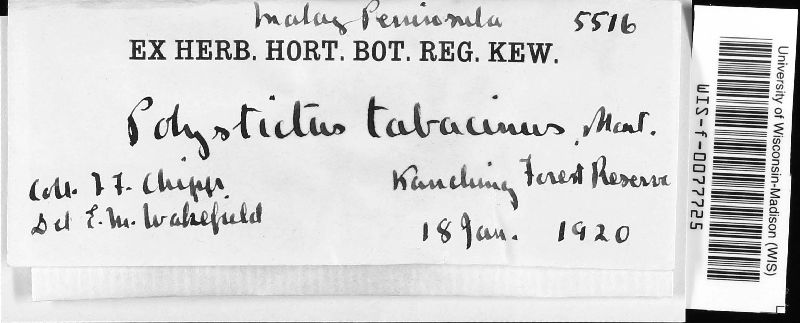 Malay Peninsula 5516
EX HERB. HORT. BOT. REG. KEW.
Polystictus tabacinus, Mont.
Coll. T. F. Chipp. Kanching Forest Reserve
Det E. M. Wakefield
18 Jan. 1920
University of Wisconsin-Madison (WIS)
WIS-f-0077725